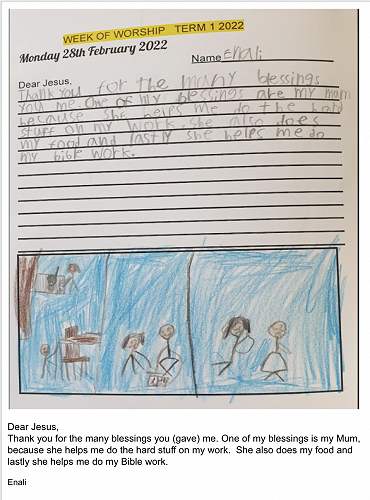 WEEK OF WORSHIP TERM 1 2022
Monday 28th February 2022
Name Enali
Dear Jesus,
Thank you for the many blessings
you me. One of my blessings are my mum
because she helps me do the hard
stuff on my work. she also does
my food and lastly she helps me do
my bible work.
Dear Jesus,
Thank you for the many blessings you (gave) me. One of my blessings is my Mum,
because she helps me do the hard stuff on my work. She also does my food and
lastly she helps me do my Bible work.
Enali